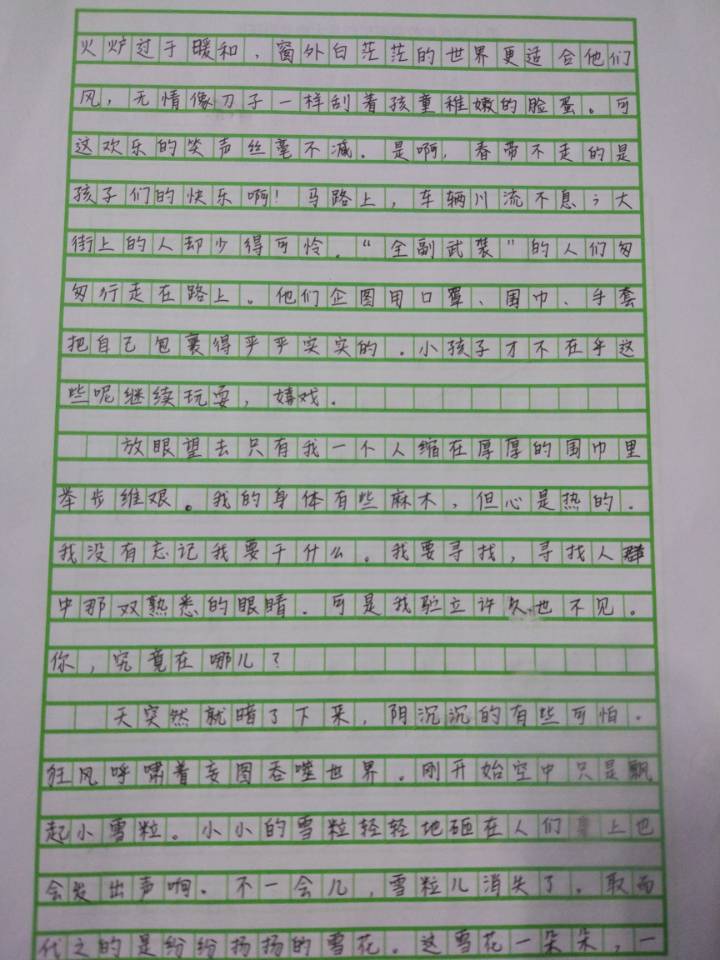 火炉过于暖和，窗外白茫茫的世界更适合他们
风，无情像刀子一样刮着孩童稚嫩的脸蛋。可
这欢乐的笑声丝毫不减．是啊，春带不走的是
孩子们的快乐啊！马路上，车辆川流不息；大
街上的人却少得可怜．“全副武装”的人们匆
匆行走在路上。他们企图用口罩、围巾、手套
把自己包裹得乎乎实实的．小孩子才不在乎这
些呢继续玩耍，嬉戏．
放眼望去只有我一个人缩在厚厚的围巾里
举步维艰。我的身体有些麻木，但心是热的．
我没有忘记我要干什么。我要寻找，寻找人群
中那双熟悉的眼睛．可是我驻立许久也不见。
你，究竟在哪儿？
天突然就暗了下来，阴沉沉的有些可怕．
狂风呼啸着妄图吞噬世界．刚开始空中只是飘
起小雪粒。小小的雪粒轻轻地砸在人们身上也
会发出声响．不一会儿，雪粒儿消失了．取而
代之的是纷纷扬扬的雪花．这雪花一朵朵，一